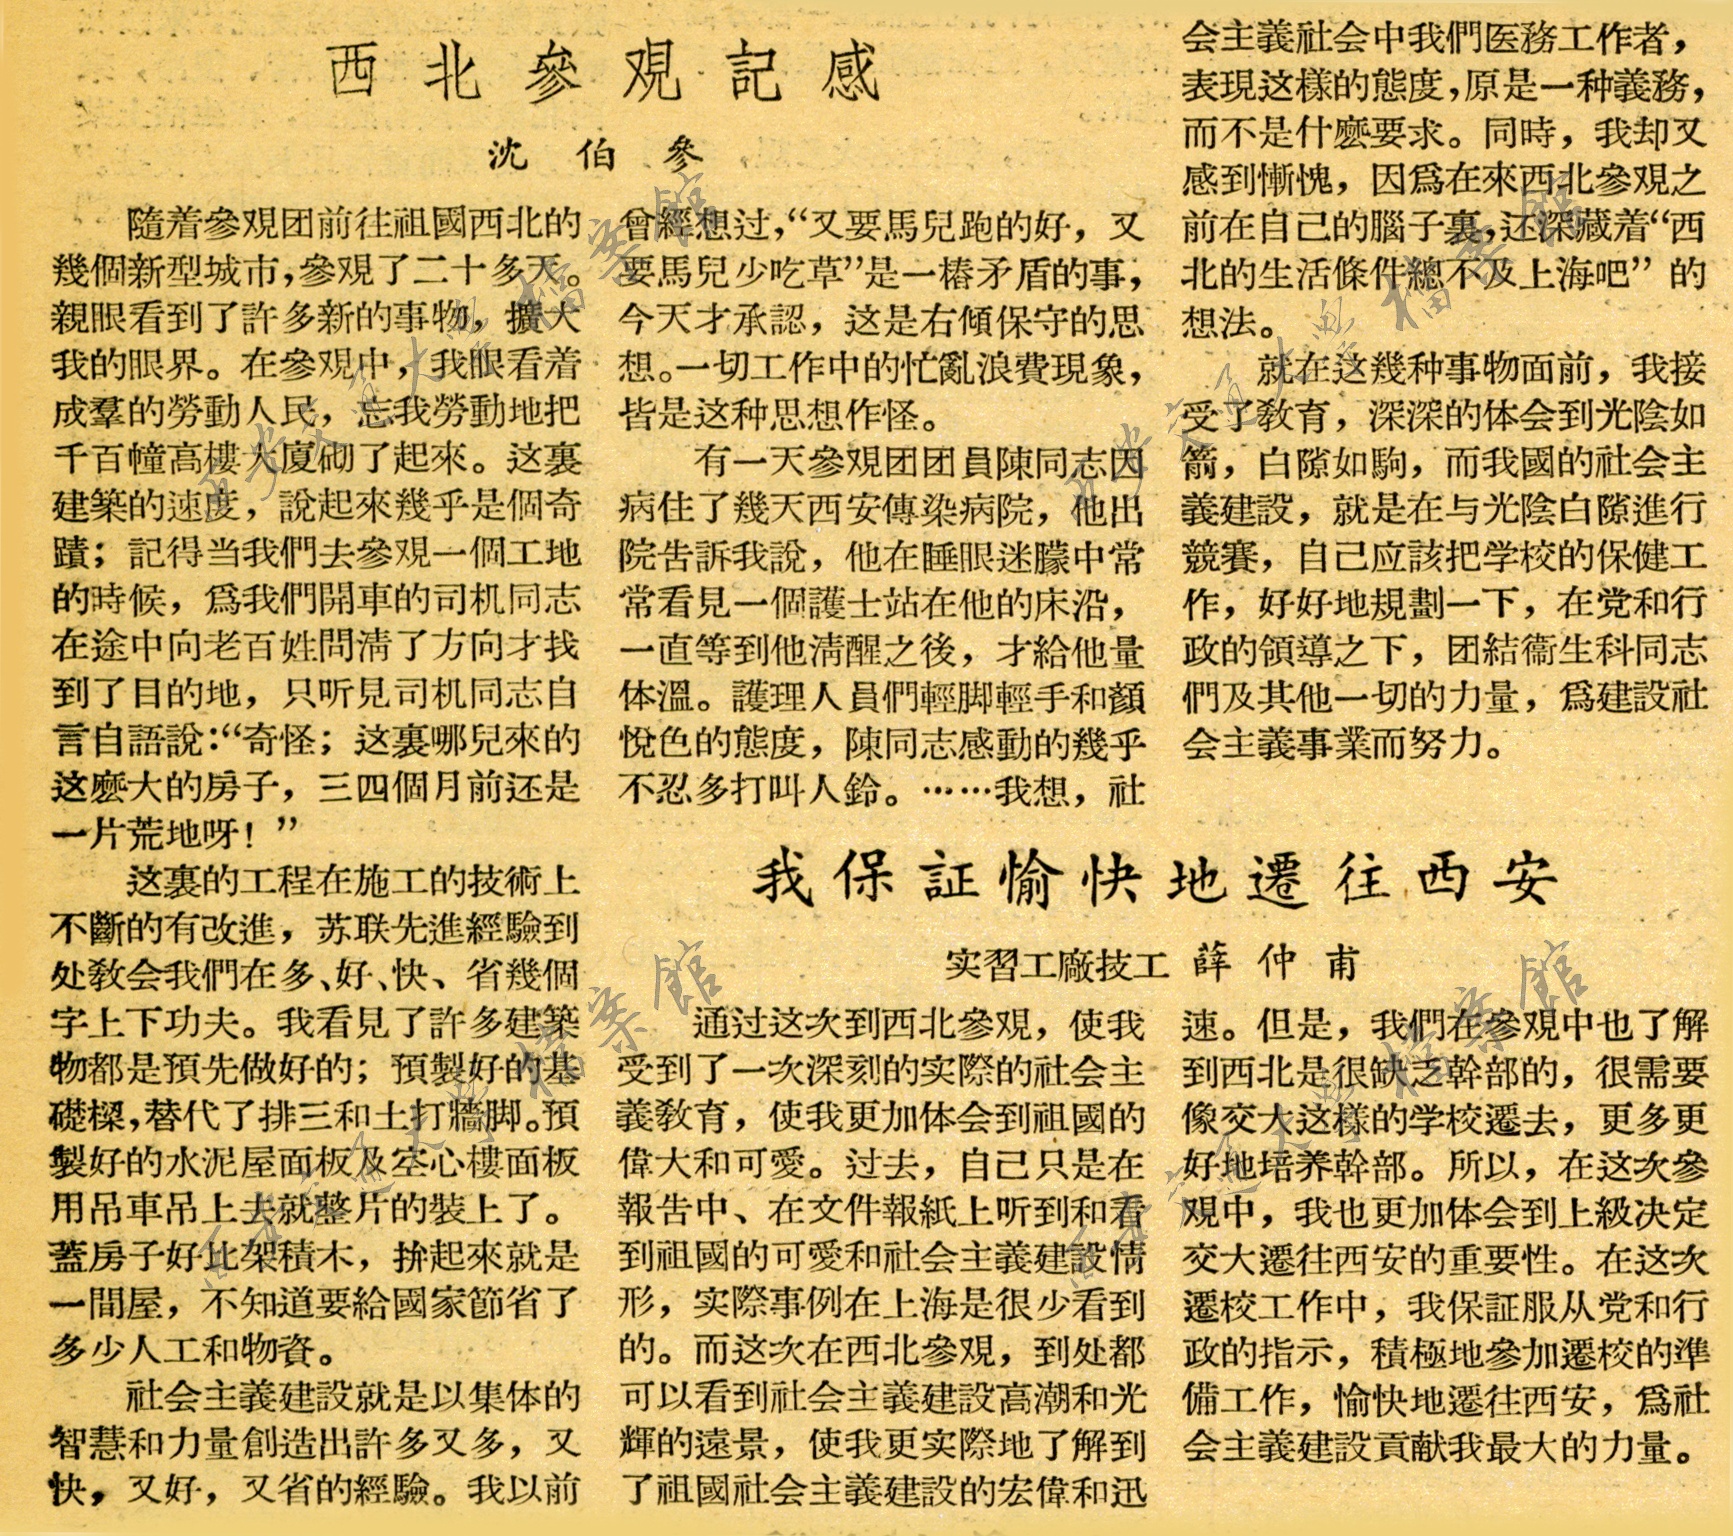 西北參观記感
沈伯參
隨着參观团前往祖國西北的
幾個新型城市，參观了二十多天。
親眼看到了許多新的事物，擴大
我的眼界。在參观中，我眼看着
成羣的勞動人民，忘我勞動地把
千百幢高樓大廈砌了起來。这裏
建築的速度，說起來幾乎是個奇
蹟；記得当我們去參观一個工地
的時候，爲我們開車的司机同志
在途中向老百姓問淸了方向才找
到了目的地，只听見司机同志自
言自語說：“奇怪；这裏哪兒來的
这麽大的房子，三四個月前还是
一片荒地呀！”
这裏的工程在施工的技術上
不斷的有改進，苏联先進經驗到
处敎会我們在多、好、快、省幾個
字上下功夫。我看見了許多建築
物都是預先做好的；預製好的基
礎樑，替代了排三和土打牆脚。預
製好的水泥屋面板及空心樓面板
用吊車吊上去就整片的裝上了。
蓋房子好比架積木，拚起來就是
一間屋，不知道要給國家節省了
多少人工和物資。
社会主義建設就是以集体的
智慧和力量創造出許多又多，又
快，又好，又省的經驗。我以前
曾經想过，“又要馬兒跑的好，又
要馬兒少吃草”是一樁矛盾的事，
今天才承認，这是右傾保守的思
想。一切工作中的忙亂浪費現象，
皆是这种思想作怪。
有一天參观团团員陳同志因
病住了幾天西安傳染病院，他出
院告訴我說，他在睡眼迷朦中常
常看見一個護士站在他的床沿，
一直等到他淸醒之後，才給他量
体溫。護理人員們輕脚輕手和顏
悅色的態度，陳同志感動的幾乎
不忍多打叫人鈴。……我想，社
会主義社会中我們医務工作者，
表現这樣的態度，原是一种義務，
而不是什麽要求。同時，我却又
感到慚愧，因爲在來西北參观之
前在自己的腦子裏，还深藏着“西
北的生活條件總不及上海吧”的
想法。
就在这幾种事物面前，我接
受了敎育，深深的体会到光陰如
箭，白隙如駒，而我國的社会主
義建設，就是在与光陰白隙進行
競賽，自己应該把学校的保健工
作，好好地規劃一下，在党和行
政的領導之下，团結衞生科同志
們及其他一切的力量，爲建設社
会主義事業而努力。
我保証愉快地遷往西安
实習工廠技工 薛仲甫
通过这次到西北參观，使我
受到了一次深刻的实際的社会主
義敎育，使我更加体会到祖國的
偉大和可愛。过去，自己只是在
報告中、在文件報紙上听到和看
到祖國的可愛和社会主義建設情
形，实際事例在上海是很少看到
的。而这次在西北參观，到处都
可以看到社会主義建設高潮和光
輝的遠景，使我更实際地了解到
了祖國社会主義建設的宏偉和迅
速。但是，我們在參观中也了解
到西北是很缺乏幹部的，很需要
像交大这樣的学校遷去，更多更
好地培养幹部。所以，在这次參
观中，我也更加体会到上級决定
交大遷往西安的重要性。在这次
遷校工作中，我保証服从党和行
政的指示，積極地參加遷校的準
備工作，愉快地遷往西安，爲社
会主義建設貢献我最大的力量。